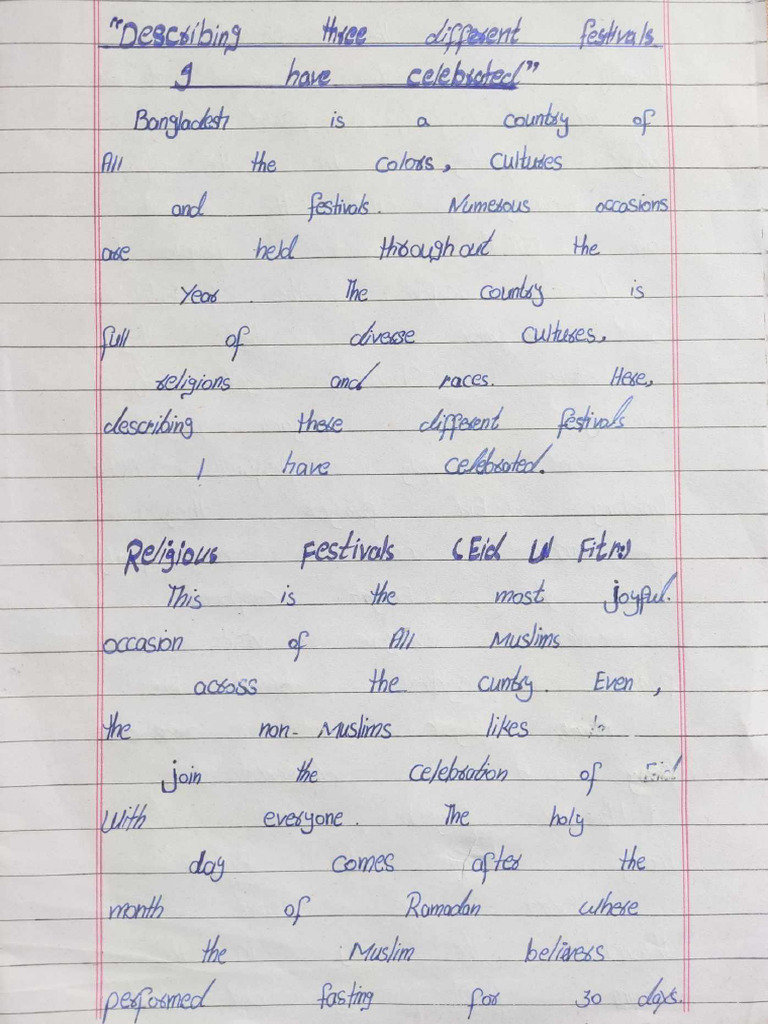 "Describing three different festivals
I have celebrated"
Bangladesh is a country of
All the colors, cultures
and festivals. Numerous occasions
are held throughout the
Year. The country is
full of diverse cultures,
religions and races. Here,
describing there different festivals
I have celebrated.
Religious Festivals (Eid Ul Fitr:)
This is the most joyful.
occasion of All Muslims
across the cuntry. Even,
the non-Muslims likes to
join the celebration of Eid
With everyone. The holy
day comes after the
month of Ramadan where
the Muslim believers
performed fasting for 30 days.